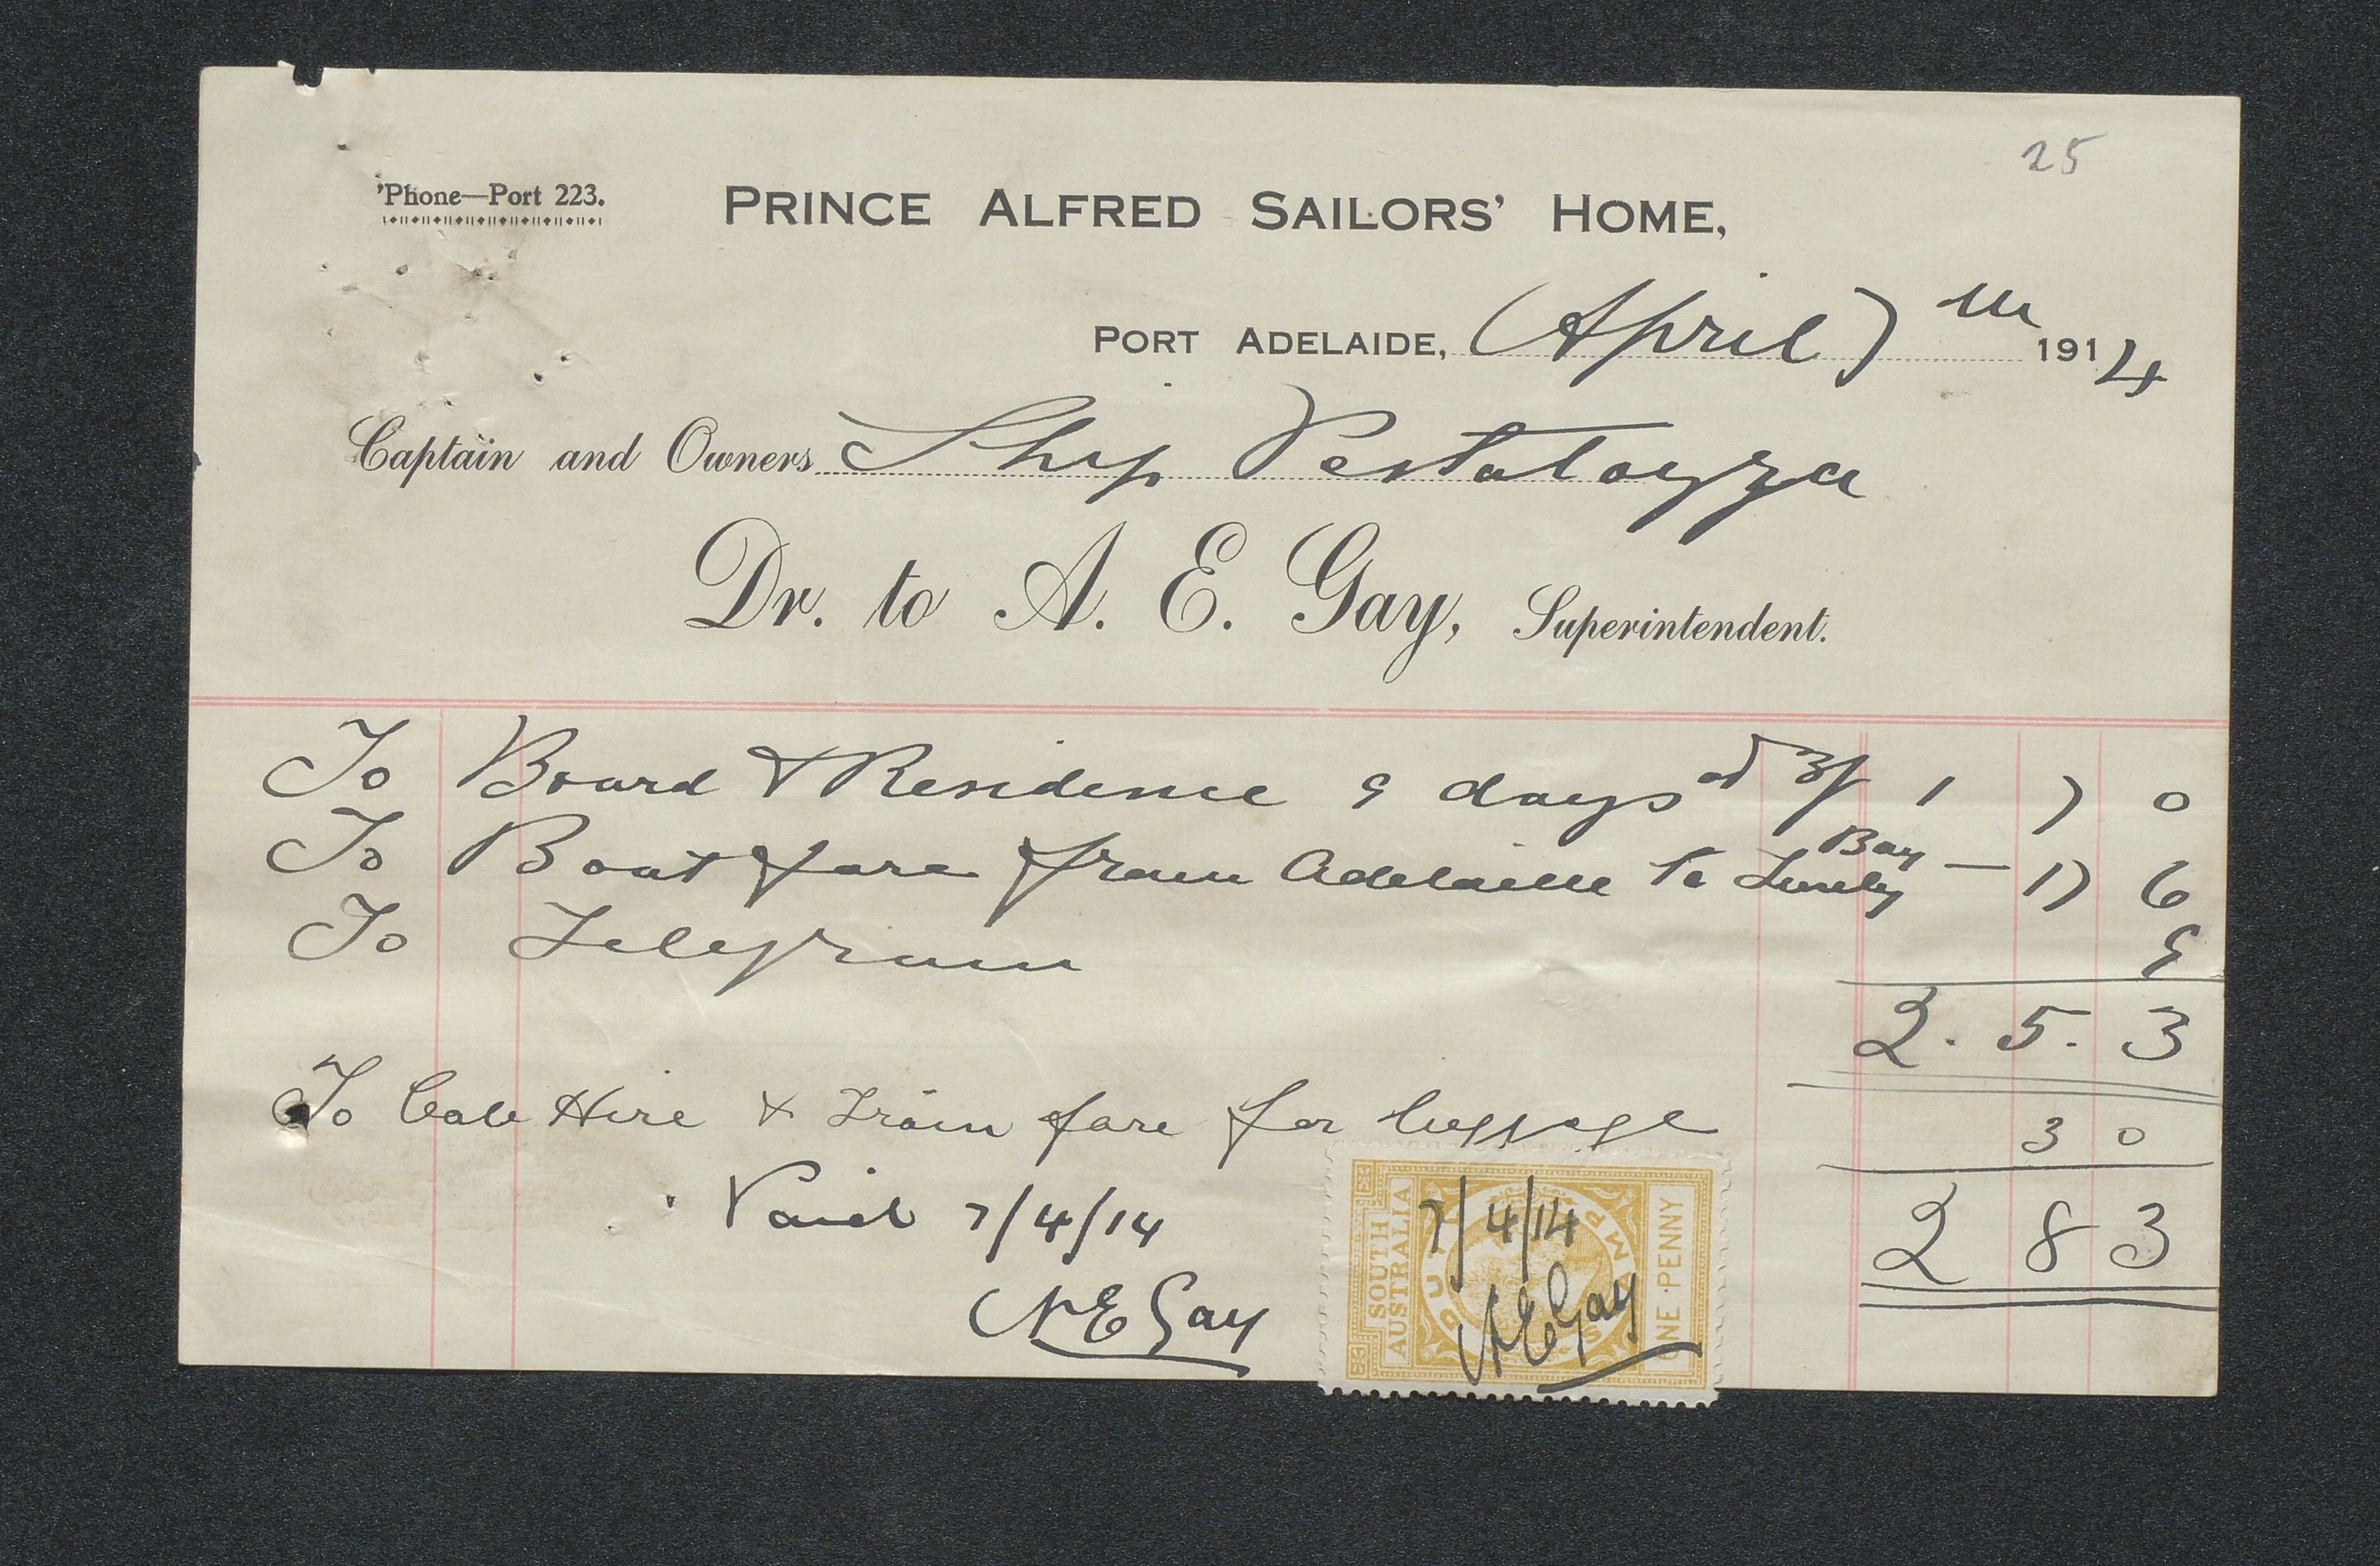 25
'Phone—Port 223.
PRINCE ALFRED SAILORS' HOME,
PORT ADELAIDE, April 7th 1914
Captain and Owners Ship
Dr. to A. E. Gay, Superintendent.
To Board & Residence 9 days at 3/ 1 7 0
To Boat fare from Adelaide to Bay — 17 6
To Telegram 9
2. 5. 3
To Cab Hire & Train fare for luggage 3 0
Paid 7/4/14
2 8 3
A E Gay
SOUTH AUSTRALIA
DUTY STAMPS
ONE PENNY
7/4/14
A E Gay